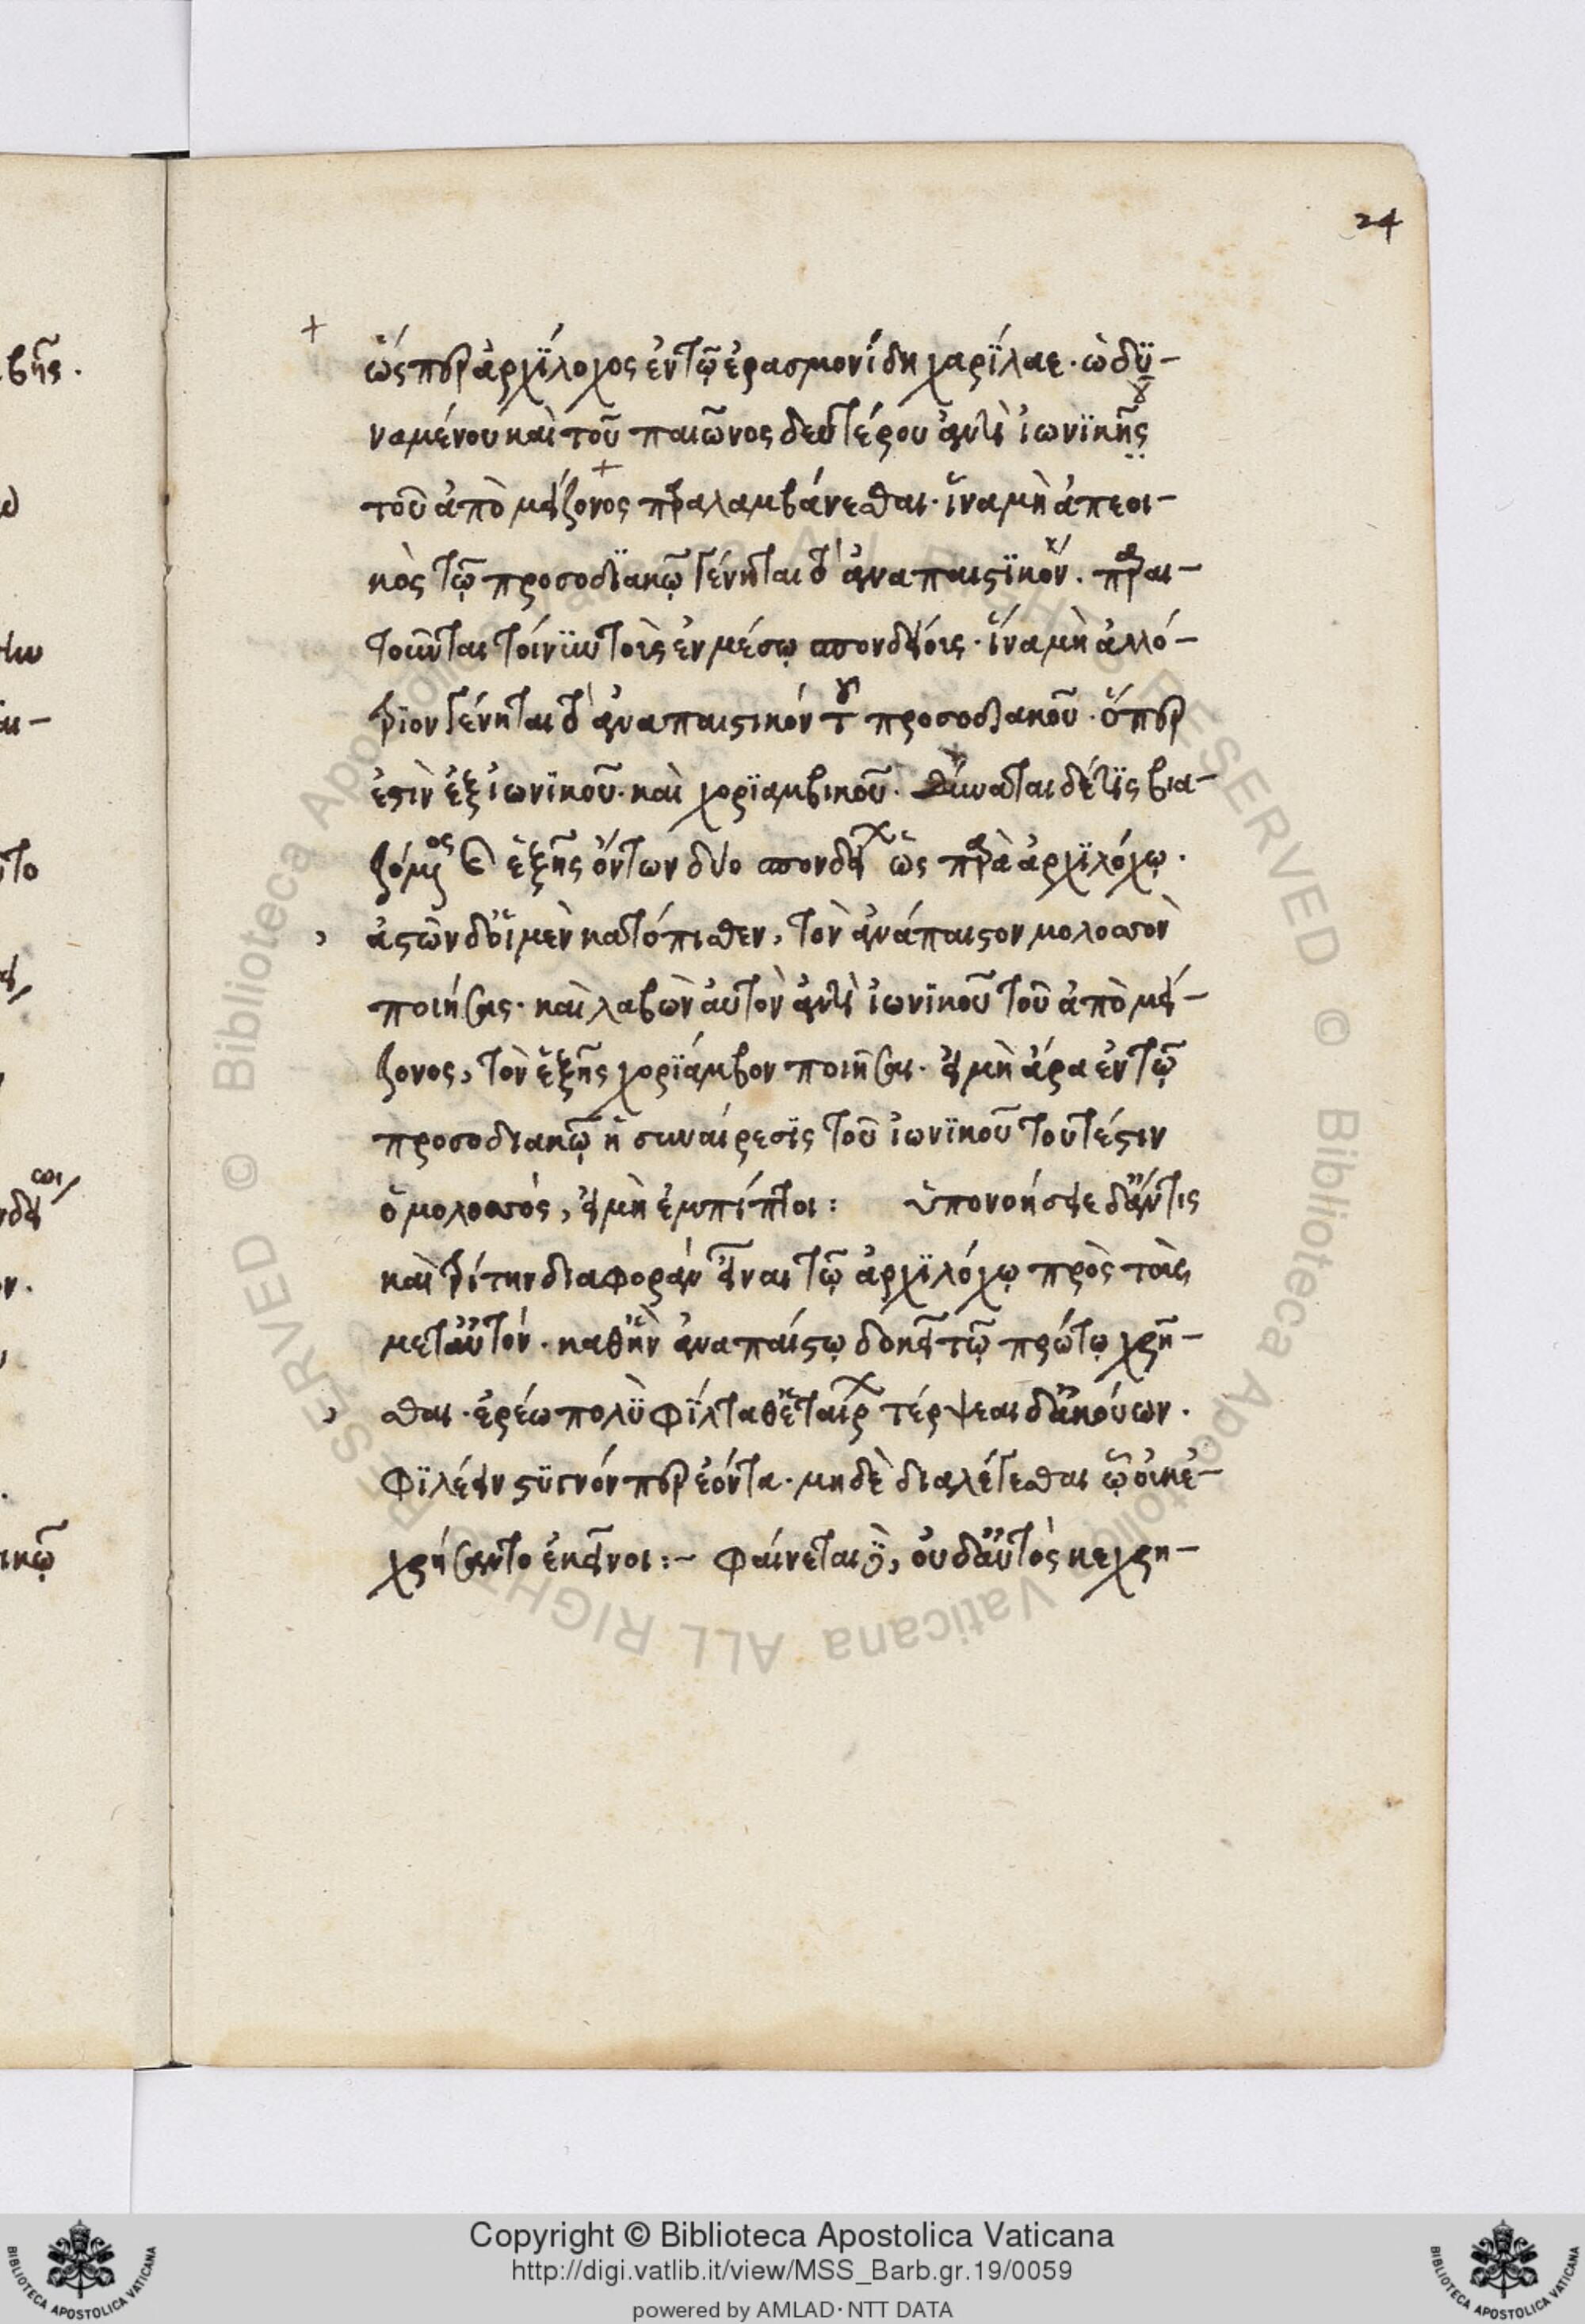 24
ὥσπερ ἀρχΐλοχος ἐν τῷ ἐρασμονίδη χαρΐλαε· ὡ δϋ-
ναμένου καὶ τοῦ παιῶνος δευτέρου ἀντὶ ἰωνϊκῆς
τοῦ ἀπὸ μείζονος παραλαμβάνεσθαι· ἵνα μὴ ἀπεοι-
κὸς τῷ προσοδϊακῷ γένηται τὸ ἀναπαιστϊκόν. παραι-
τοῦνται τοίνϋν τοὺς ἐν μέσῳ σπονδείους· ἵνα μὴ ἀλλό-
τρϊον γένηται τὸ ἀναπαιστικόν τοῦ προσοδιακοῦ· ὅπερ
ἐστὶν ἐξ ἰωνϊκοῦ· καὶ χορϊαμβικοῦ· δύναται δέ τϊς βια-
ζόμενος καὶ ἑξῆς ὄντων δύο σπονδείων ὡς παρὰ ἀρχϊλόχῳ·
ἀστῶν δ' οἵ μὲν κατόπισθεν, τὸν ἀνάπαιστον μολοσσὸν
ποιήσας· καὶ λαβὼν αὐτὸν ἀντὶ ἰωνϊκοῦ τοῦ ἀπὸ μεί-
ζονος, τὸν ἑξῆς χορϊάμβον ποιῆσαι· εἰ μὴ ἄρα ἐν τῷ
προσοδιακῷ ἡ συναίρεσϊς τοῦ ἰωνϊκοῦ τουτέστιν
ὁ μολοσσός, εἰ μὴ ἐμπίπτοι: ὑπονοήσειε δ' ἄν τις
καὶ τρίτην διαφορὰν εἶναι τῷ ἀρχϊλόχῳ πρὸς τοὺς
μετ' αὐτόν· καθ' ἣν ἀναπαίστῳ δοκεῖ τῷ πρώτῳ χρῆ-
σθαι· ἐρέω πολὺ φΐλταθ' ἑταίρων τέρψεαι δ' ἀκούων·
φϊλέειν στϋγνόν περ ἐόντα· μηδὲ διαλέγεσθαι ᾧ οἱ κἐ-
χρήσαντο ἐκεῖνοι:- φαίνεται δὲ, οὐδ' αὐτὸς κεχρη-
Copyright © Biblioteca Apostolica Vaticana
http://digi.vatlib.it/view/MSS_Barb.gr.19/0059
powered by AMLAD · NTT DATA